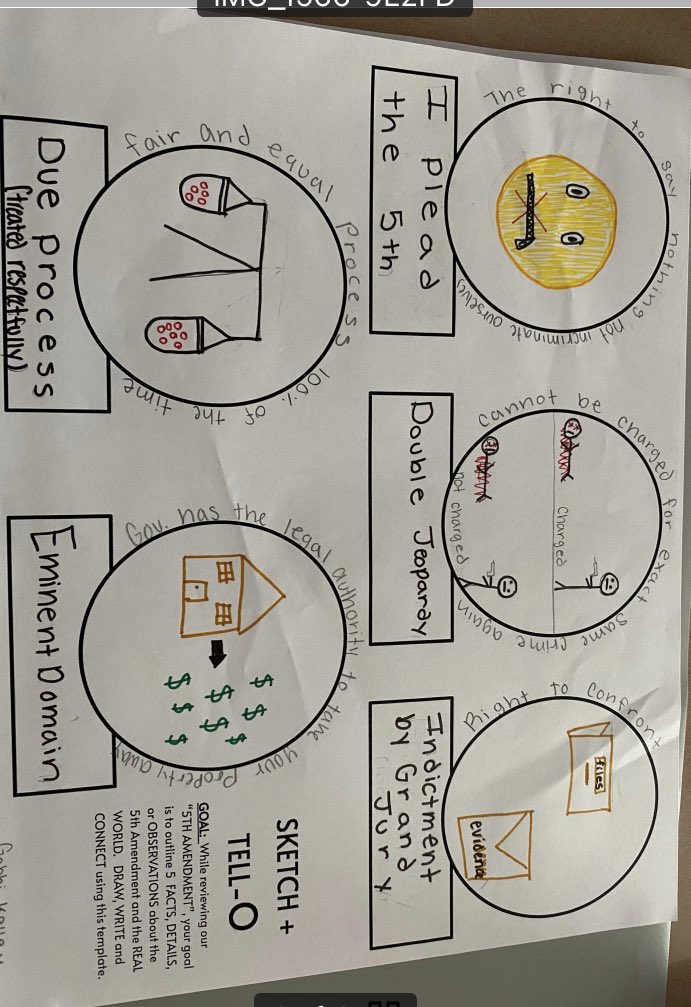 SKETCH +
TELL-O
GOAL: While reviewing our
"5TH AMENDMENT", your goal
is to outline 5 FACTS, DETAILS,
or OBSERVATIONS about the
5th Amendment and the REAL
WORLD. DRAW, WRITE and
CONNECT using this template.
The right to say nothing not incriminate ourselves
I plead
the 5th
cannot be charged for exact same crime again
charged
not charged
Double Jeopardy
Right to confront
files
evidence
Indictment
by Grand
Jury
fair and equal process 100% of the time
Due process
(treated respectfully)
Gov. has the legal authority to take your property away
$ $ $ $ $ $ $ $
Eminent Domain